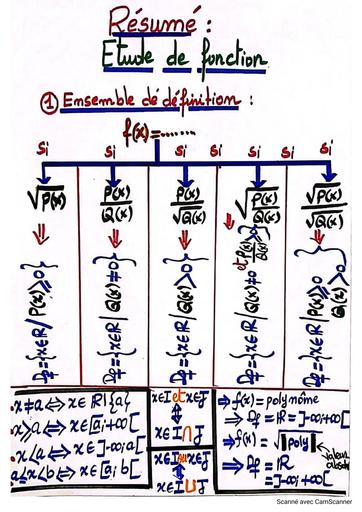 Résumé :
Etude de fonction
① Ensemble de définition :
f(x)=........
Si Si Si Si Si Si
√P(x)
P(x)/Q(x)
P(x)/√Q(x)
√(P(x)/Q(x))
√P(x)/√Q(x)
Df={x∈R/P(x)≥0}
Df={x∈R|Q(x)≠0}
Df={x∈R|Q(x)>0}
Df={x∈R|Q(x)≠0 et P(x)/Q(x)≥0}
Df={x∈R|P(x)≥0
Q(x)>0}
.x≠a⇔x∈ℝ\{a}
.x≥a⇔x∈[a;+∞[
.x<a⇔x∈]-∞;a[
a≤x<b⇔x∈[a;b[
x∈I et x∈J
⇕
x∈I∩J
x∈I ou x∈J
⇕
x∈I∪J
→f(x)=polynôme
⇒Df=ℝ=]-∞;+∞[
→f(x)=√|poly|
valeur absolue
⇒Df=ℝ
=]-∞;+∞[
Scanné avec CamScanner